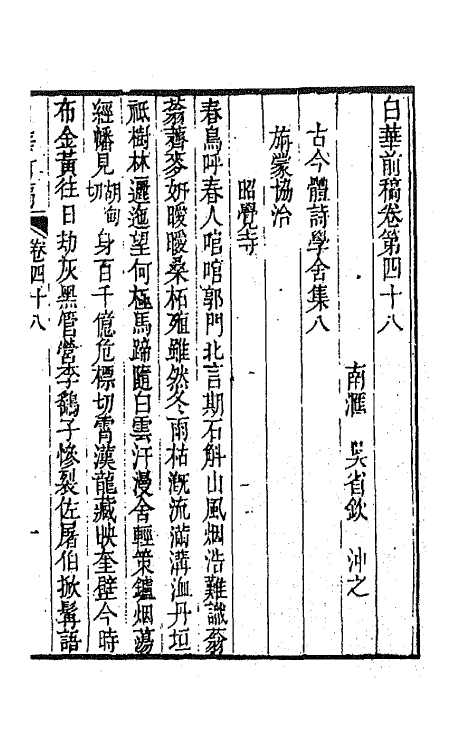 白華前稿卷第四十八
南滙　吳省欽　沖之
古今體詩學舍集八
旃蒙協洽
昭覺寺
春鳥呼春人喧喧郭門北言期石斛山風烟浩難識蓊
蓊薺麥妍曖曖桑柘殖雖然冬雨枯漑流滿溝洫丹垣
祇樹林邐迤望何極馬蹄隨白雲汗漫舍輕策鑪烟蕩
經幡見胡甸切身百千億危標切霄漢龍藏映奎壁今時
布金黃往日劫灰黑管營李鷂子慘裂佐屠伯掀髯語
卷四十八
一